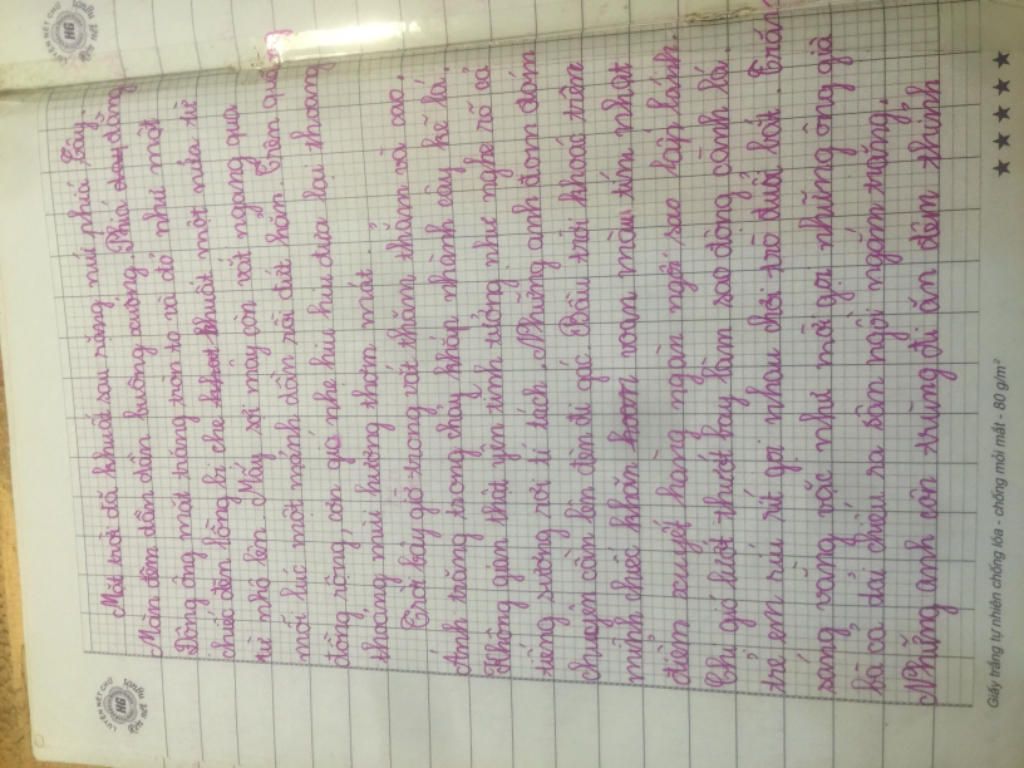 Mặt trời đã khuất sau rặng núi phía Tây.
Màn đêm dần dần buông xuống. Phía đông
Đông ông mặt trăng tròn to và đỏ như một
chiếc đèn lồng bị che khuất một nửa từ
từ nhô lên. Mấy sợi mây còn vắt ngang qua
mỗi lúc một mảnh dần rồi đứt hẳn. Trên quãng
đồng rộng, cơn gió nhẹ hiu hiu đưa lại thoang
thoảng mùi hương thơm mát.
Trời bây giờ trong vắt thăm thẳm và cao.
Ánh trăng trong chảy khắp nhành cây kẽ lá.
Không gian thật yên tĩnh tưởng như nghe rõ cả
tiếng sương rơi tí tách. Những anh đom đóm
chuyên cần lên đèn đi gác. Bầu trời khoác trên
mình chiếc khăn voan màu tím nhạt
điểm xuyết hàng ngàn ngôi sao lấp lánh.
Chị gió lướt thướt bay làm sao động cành lá.
trẻ em ríu rít gọi nhau chơi trò đuổi bắt. Trăng
sáng vằng vặc như mời gọi những ông già
bà cả dải chiếu ra sân ngồi ngắm trăng.
Những anh côn trùng đi ăn đêm thỉnh
Giấy trắng tự nhiên chống lóa - chống mỏi mắt - 80 g/m²
LUYỆN NÉT CHỮ
HG